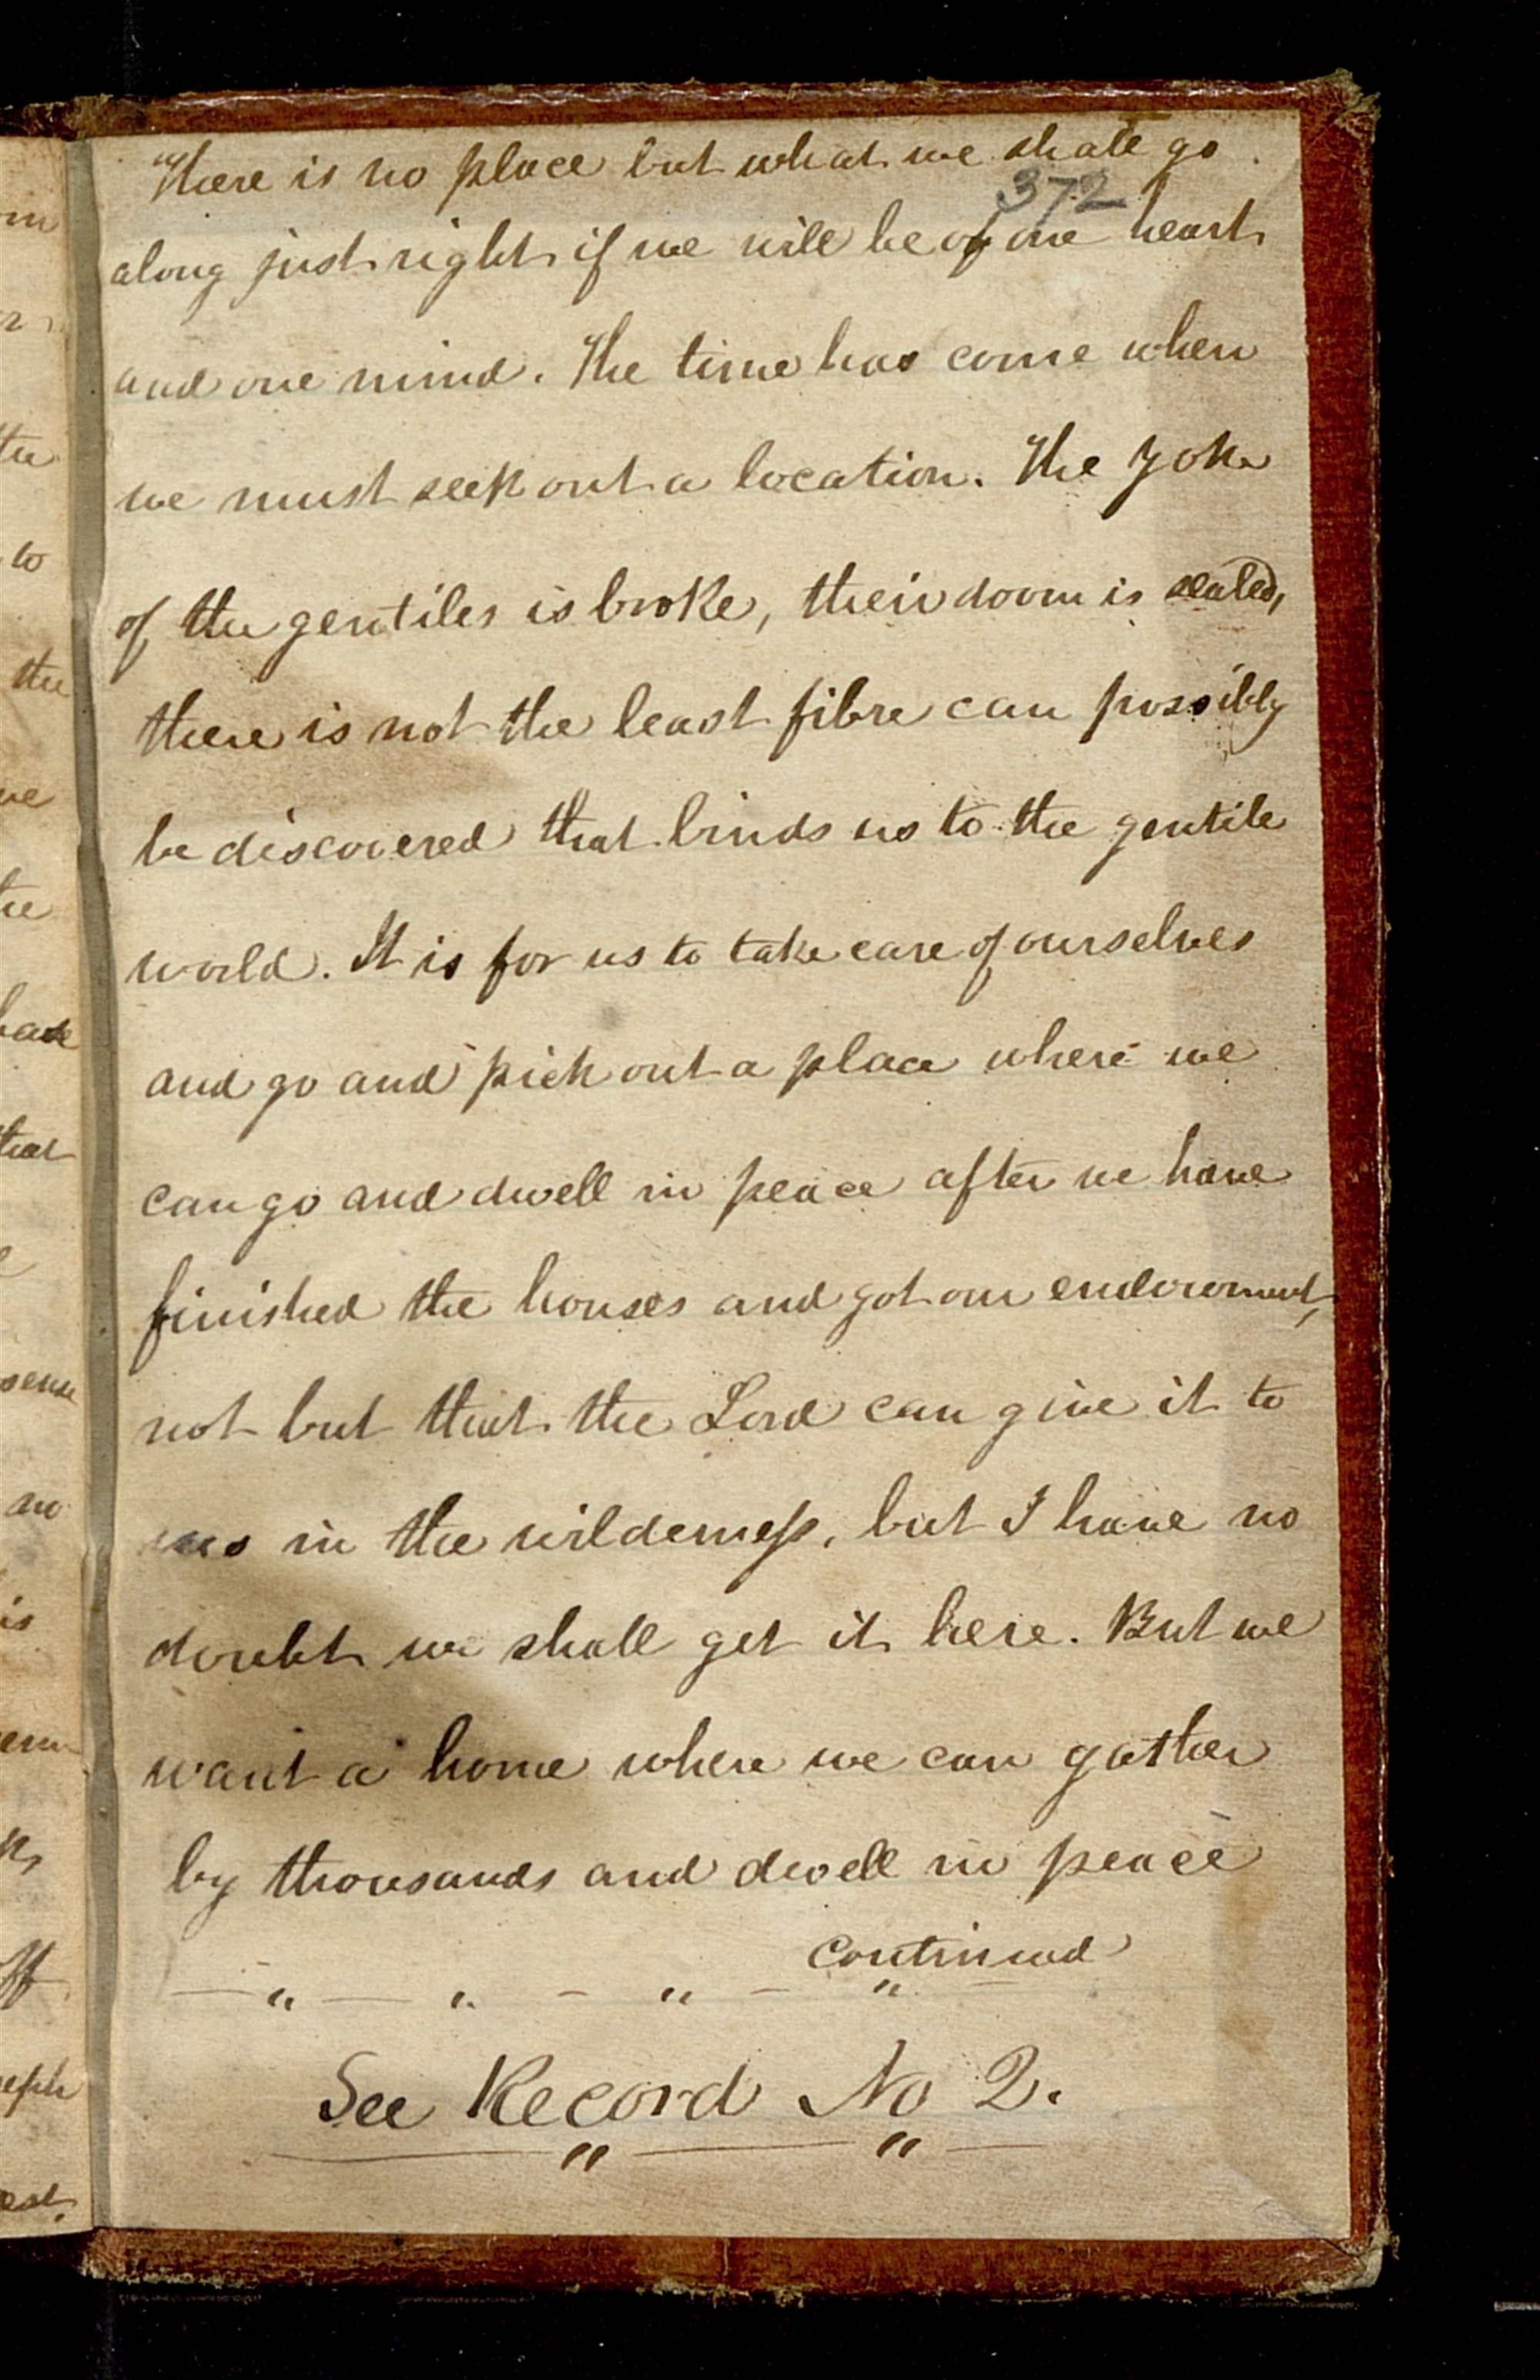 There is no place but what we shall go
372
along just right if we will be of one heart
and one mind. The time has come when
we must seek out a location. The yoke
of the gentiles is broke, their doom is sealed,
there is not the least fibre can possibly
be discovered that binds us to the gentile
world. It is for us to take care of ourselves
and go and pick out a place where we
can go and dwell in peace after we have
finished the houses and got our endowment,
not but that the Lord can give it to
us in the wilderness, but I have no
doubt we shall get it here. But we
want a home where we can gather
by thousands and dwell in peace
continued
See Record No 2.